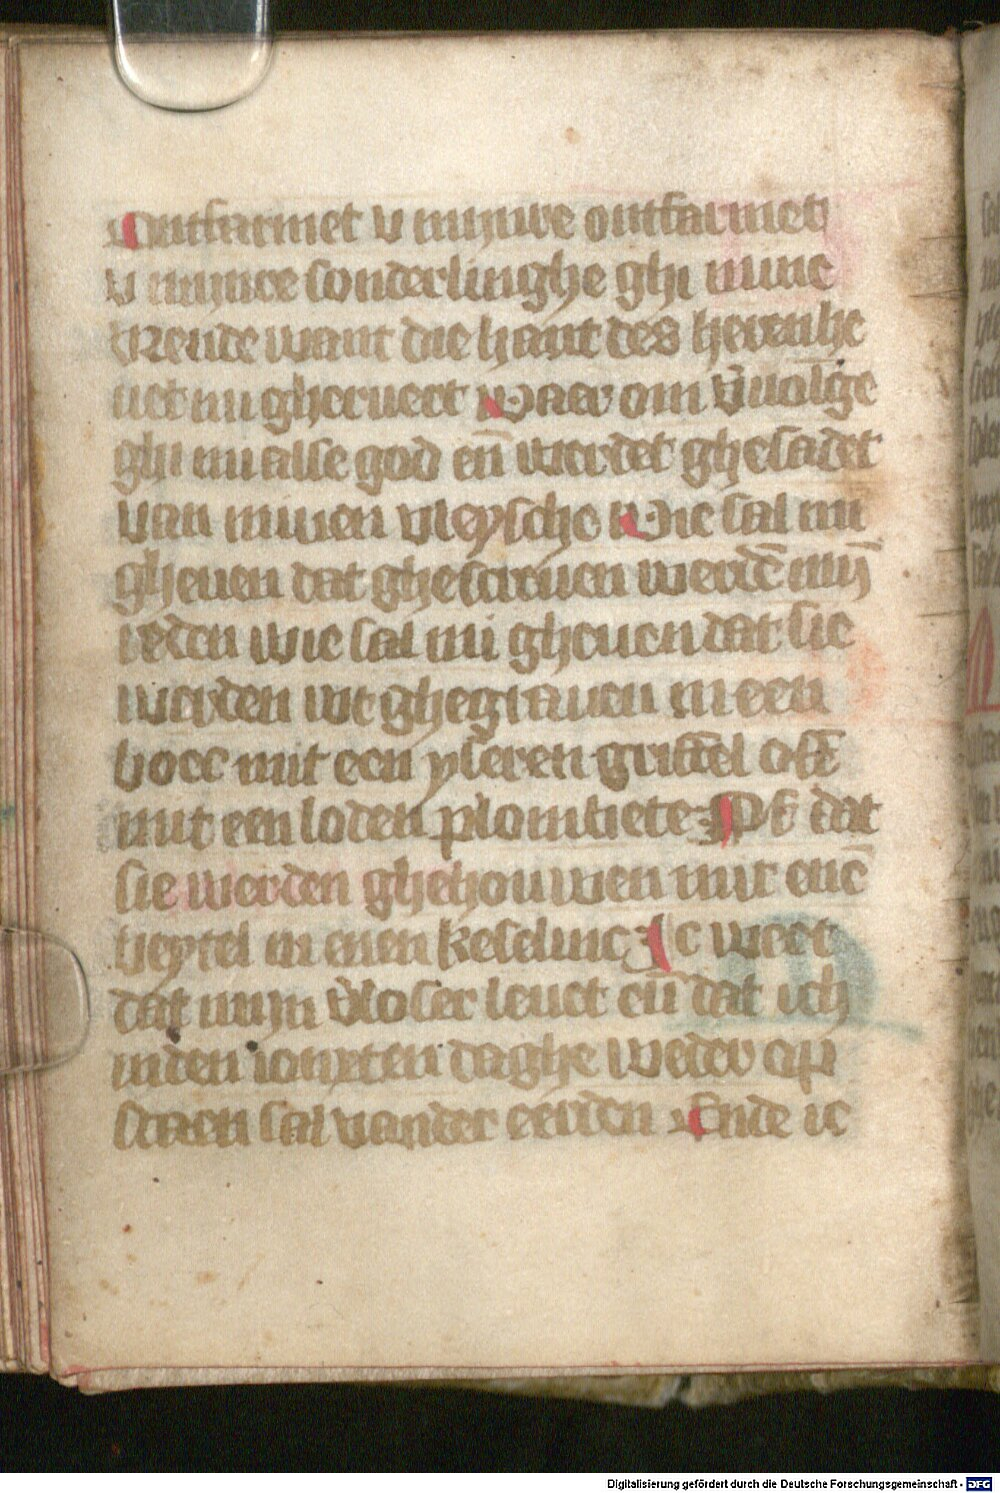 Ontfarmet v mijnre ontfarmet
v mijnre sonderlinghe ghi mine
vrende want die hant des heren he
uet mi gherueert Waer om v̄uolge
ghi mi alse god en̄ werdet ghesadet
van minen vleysche Wie sal mi
gheuen dat ghescreuen werdē mijn̄
reden wie sal mi gheuen dat sie
werden wt ghegrauen in een
bocc mit een yseren griffel ofte
mit een loden plombiete Of dat
sie werden ghehouwen mit enē
beytel in enen keselinc Ic weet
dat mijn v̄loser leuet en̄ dat ich
inden ioncsten daghe weder op
staen sal vander eerden Ende ic
Digitalisierung gefördert durch die Deutsche Forschungsgemeinschaft - DFG